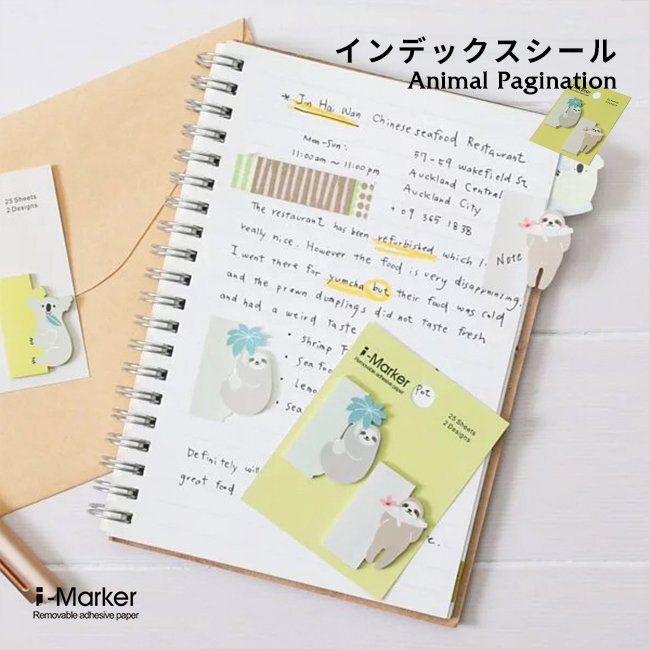 インデックスシール
Animal Pagination
* Jin Hai Wan Chinese seafood Restaurant
Mon-Sun:
11:00am ~ 11:00 pm
57-59 Wakefield St
Auckland Central
Auckland City
+ 09 365 1838
The restaurant has been refurbished which i.
really nice. However the food is very disappointing.
I went there for yumcha but their food was cold
and the prawn dumplings did not taste fresh
and had a weird taste
• Shrimp
• Sea foo
• Lemo
• Sea
Definitely will
great food
Note
25 Sheets
2 Designs
i-Marker
Removable adhesive paper
25 Sheets
2 Designs
i-Marker
Removable adhesive paper